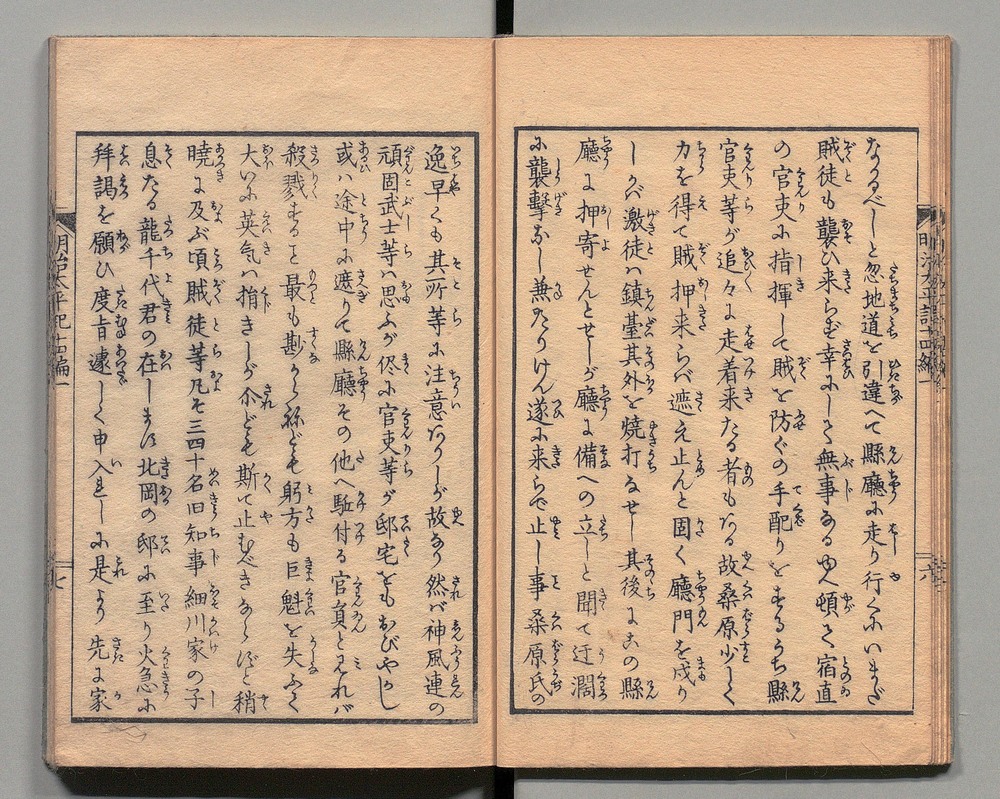 なるべしと忽地道を引違へて縣廳に走り行くにいまだ
賊徒も襲ひ来らず幸にして無事なるゆゑ頓て宿直
の官吏に指揮して賊を防ぐの手配りをするうち縣
官吏等が追々に走着来たる者もある故桑原少しく
力を得て賊押来らバ遮え止んと固く廳門を戍り
しがバ激徒ハ鎮臺其外を焼打なせし其後にこの縣
廳に押寄せんとせしが廳に備への立しと聞て迂濶
に襲撃なし兼たりけん遂に来らで止し事桑原氏の
逸早くも其所等に注意ありしが故なり然バ神風連の
頑固武士等ハ思ふが侭に官吏等が邸宅をもおびやかし
或ハ途中に遮りて縣廳その他へ駈付る官員と見れバ
殺戮すること最も尠からねども躬方も巨魁を失ふて
大いに英気ハ掮きしが尒ども斯て止むべきならずと稍
曉に及ぶ頃賊徒等凡そ三四十名旧知事細川家の子
息たる龍千代君の在しまス北岡の邸に至り火急に
拜謁を願ひ度旨遽しく申入れしに是より先に家
明治太平記十四編一
七
六